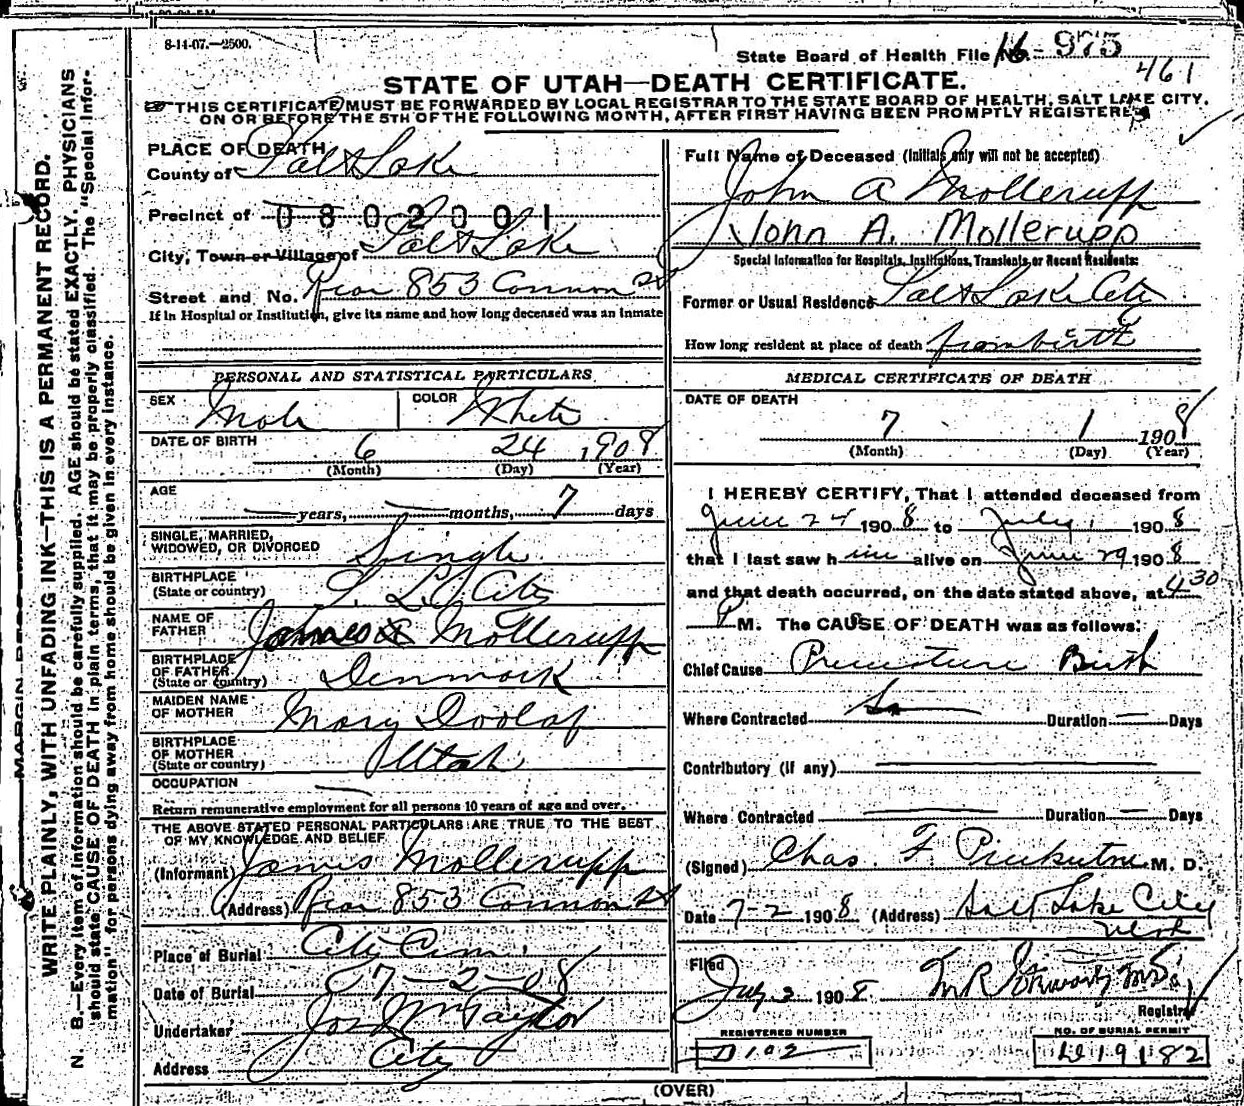 8-14-07.—2500.
State Board of Health File No. 16-975
461
STATE OF UTAH—DEATH CERTIFICATE.
THIS CERTIFICATE MUST BE FORWARDED BY LOCAL REGISTRAR TO THE STATE BOARD OF HEALTH, SALT LAKE CITY,
ON OR BEFORE THE 5TH OF THE FOLLOWING MONTH, AFTER FIRST HAVING BEEN PROMPTLY REGISTERED
WRITE PLAINLY, WITH UNFADING INK—THIS IS A PERMANENT RECORD.
N. B.—Every item of information should be carefully supplied. AGE should be stated EXACTLY. PHYSICIANS
should state CAUSE OF DEATH in plain terms, that it may be properly classified. The "Special Infor-
mation" for persons dying away from home should be given in every instance.
PLACE OF DEATH
County of Salt Lake
Precinct of 0802001
City, Town or Village of Salt Lake
Street and No. Rear 853 Cannon St
If in Hospital or Institution, give its name and how long deceased was an inmate
PERSONAL AND STATISTICAL PARTICULARS
SEX Male COLOR White
DATE OF BIRTH
6 24 1908
(Month) (Day) (Year)
AGE
— years, — months, 7 days
SINGLE, MARRIED,
WIDOWED, OR DIVORCED Single
BIRTHPLACE
(State or country) S. L. City
NAME OF
FATHER James Mollerupp
BIRTHPLACE
OF FATHER
(State or country) Denmark
MAIDEN NAME
OF MOTHER Mary
BIRTHPLACE
OF MOTHER
(State or country) Utah
OCCUPATION —
Return remunerative employment for all persons 10 years of age and over.
THE ABOVE STATED PERSONAL PARTICULARS ARE TRUE TO THE BEST
OF MY KNOWLEDGE AND BELIEF
(Informant) James Mollerupp
(Address) Rear 853 Cannon St
Place of Burial City Cem.
Date of Burial 7-2-08
Undertaker Jos Wm Taylor
Address City
Full Name of Deceased (Initials only will not be accepted)
John A Mollerupp
John A. Mollerupp
Special Information for Hospitals, Institutions, Transients, or Recent Residents:
Former or Usual Residence Salt Lake City
How long resident at place of death from birth
MEDICAL CERTIFICATE OF DEATH
DATE OF DEATH
7 1 1908
(Month) (Day) (Year)
I HEREBY CERTIFY, That I attended deceased from
June 24 1908 to July 1 1908
that I last saw him alive on June 29 1908
and that death occurred, on the date stated above, at 4 30
P M. The CAUSE OF DEATH was as follows:
Chief Cause Premature Birth
Where Contracted Duration — Days
Contributory (if any) —
Where Contracted — Duration — Days
(Signed) Chas. F. M. D.
Date 7-2 1908 (Address) Salt Lake City
Utah
Filed
July 2 1908
Registrar
REGISTERED NUMBER
D 102
NO. OF BURIAL PERMIT
19182
(OVER)